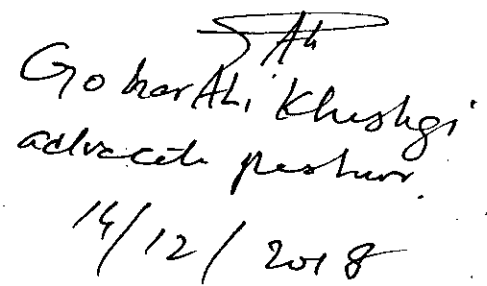 Gohar Ali Kheshgi
advocate peshawr.
14/12/2018